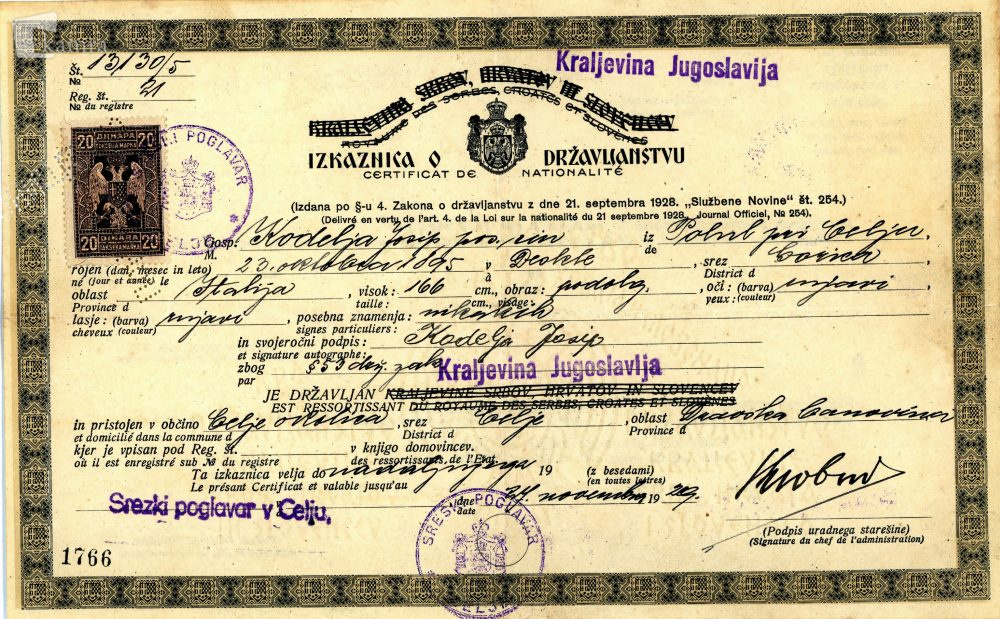 Kraljevina Jugoslavija
Št. 13/30/5
No
Reg. št. 21
No du registre
KRALJEVINA SRBOV, HRVATOV IN SLOVENCEV
ROYAUME DES SERBES, CROATES ET SLOVÈNES
IZKAZNICA O DRŽAVLJANSTVU
CERTIFICAT DE NATIONALITÉ
20 ДИНАРА 20
20 DINARA 20
SRESKI POGLAVAR
CELJE
(Izdana po §-u 4. Zakona o državljanstvu z dne 21. septembra 1928. „Službene Novine" št. 254.)
(Delivré en vertu de l'art. 4. de la Loi sur la nationalité du 21 septembre 1928. Journal Officiel, No 254).
Gosp. Kodelja Josip pos. sin iz Polul pri Celju,
M. de
rojen (dan, mesec in leto) 23. oktobra 1895 v Deskle, srez Gorica
né (jour et année) le District d
oblast Italija, visok: 166 cm., obraz: podolg., oči: (barva) rujavi,
Province d taille: cm., visage: yeux: (couleur)
lasje: (barva) rujavi, posebna znamenja: nikakih
cheveux (couleur) signes particuliers:
in svojeročni podpis: Kodelja Josip
et signature autographe:
zbog § 53 drž. zak.
par
Kraljevina Jugoslavija
JE DRŽAVLJAN KRALJEVINE SRBOV, HRVATOV IN SLOVENCEV
EST RESSORTISSANT DU ROYAUME DES SERBES, CROATES ET SLOVÈNES
in pristojen v občino Celje okolica, srez Celje, oblast Dravska banovina
et domicilié dans la commune d District d Province d
kjer je vpisan pod Reg. št. v knjigo domovincev.
où il est enregistré sub No du registre des ressortissants de l'Etat.
Ta izkaznica velja do nadaljnjega 19 (z besedami)
Le présant Certificat et valable jusqu'au (en toutes lettres)
dne 24. novembra 1929.
date
Srezki poglavar v Celju,
SRESKI POGLAVAR
CELJE
(Podpis uradnega starešine)
(Signature du chef de l'administration)
1766